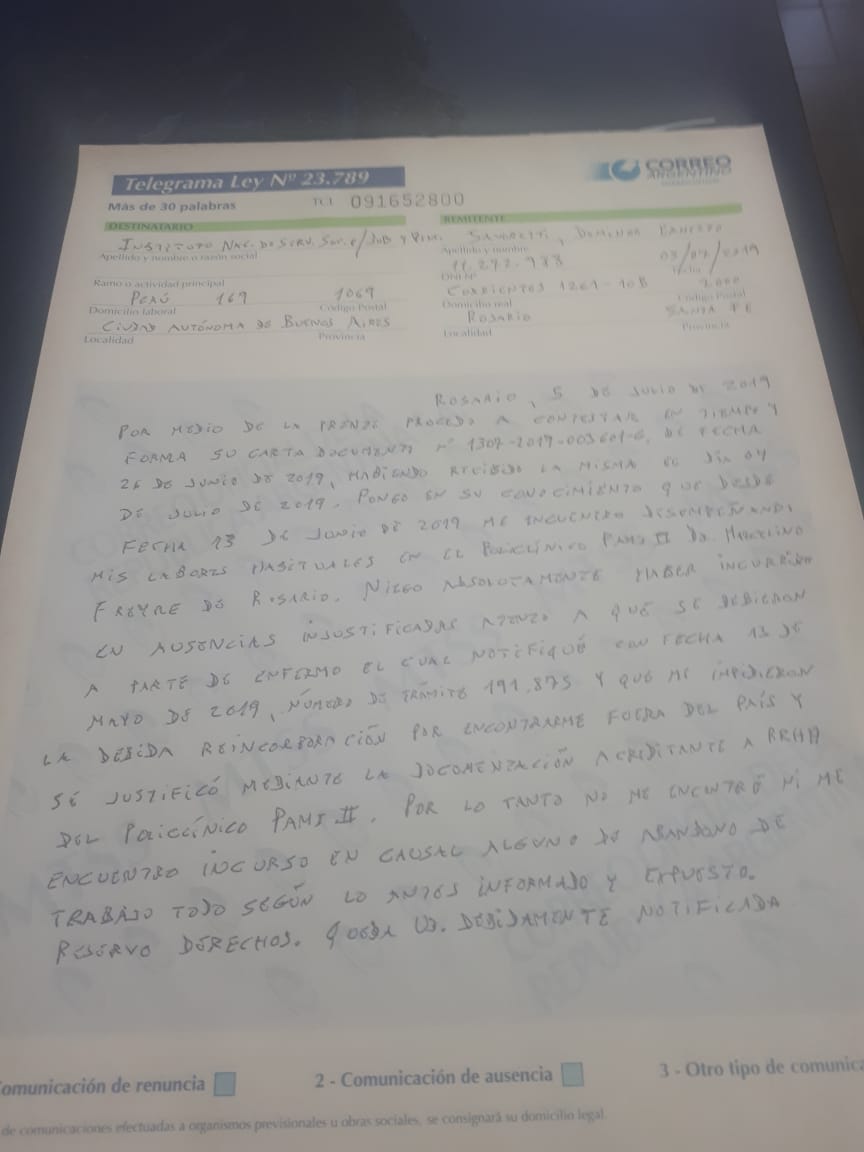 Telegrama Ley Nº 23.789
CORREO
ARGENTINO
Más de 30 palabras
TCL 091652800
DESTINATARIO
REMITENTE
INSTITUTO NAC. DE SERV. SOC. P/ JUB. Y PENS.
Apellido y nombre o razón social
Apellido y nombre
11.272.
03/07/2019
DNI Nº
Fecha
Ramo o actividad principal
CORRIENTES 1261 - 10B
2000
PERÚ 169
1069
Domicilio laboral
Código Postal
Domicilio real
Código Postal
CIUDAD AUTÓNOMA DE BUENOS AIRES
ROSARIO
SANTA FE
Localidad
Provincia
Localidad
Provincia
ROSARIO, 5 DE JULIO DE 2019
POR MEDIO DE LA PROCEDO A CONTESTAR EN TIEMPO Y
FORMA SU CARTA DOCUMENTO Nº 1307-2019- DE FECHA
26 DE JUNIO DE 2019, HABIENDO RECIBIDO LA MISMA EL DÍA 04
DE JULIO DE 2019. PONGO EN SU CONOCIMIENTO QUE DESDE
FECHA 13 DE JUNIO DE 2019 ME ENCUENTRO
MIS LABORES HABITUALES EN EL POLICLÍNICO PAMI II DR. MARCELINO
FREYRE DE ROSARIO. NIEGO ABSOLUTAMENTE HABER INCURRIDO
EN AUSENCIAS INJUSTIFICADAS ATENTO A QUE SE DEBIERON
A PARTE DE ENFERMO EL CUAL NOTIFIQUÉ CON FECHA 13 DE
MAYO DE 2019, NÚMERO DE TRÁMITE 191.875 Y QUE ME IMPIDIERON
LA DEBIDA REINCORPORACIÓN POR ENCONTRARME FUERA DEL PAÍS Y
SE JUSTIFICÓ MEDIANTE LA DOCUMENTACIÓN ACREDITANTE A RRHH
DEL POLICLÍNICO PAMI II. POR LO TANTO NO ME NI ME
ENCUENTRO INCURSO EN CAUSAL ALGUNO DE ABANDONO DE
TRABAJO TODO SEGÚN LO ANTES INFORMADO Y EXPUESTO.
RESERVO DERECHOS. QUEDA UD. DEBIDAMENTE NOTIFICADA
omunicación de renuncia
2 - Comunicación de ausencia
3 - Otro tipo de comunica
de comunicaciones efectuadas a organismos previsionales u obras sociales, se consignará su domicilio legal.